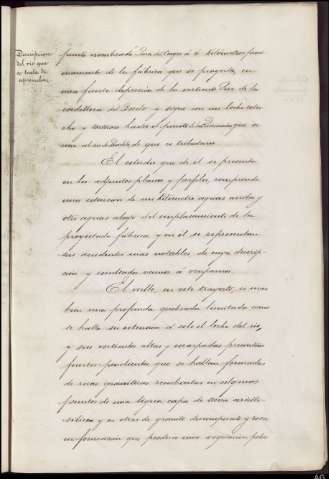 Descripcion
del rio que
se trata de
aprovechar.
punto nombrado
mente de la fábrica que se proyecta, en
una fuerte depresion de la vertiente Sur de la
cordillera del y sigue con un lecho estre
cho y hasta el puente de que se
une al de de que es tributario.
El estudio que de él se presenta
en los adjuntos planos y perfiles comprende
una extension de un kilometro aguas arriba y
otro aguas abajo del emplazamiento de la
proyectada fábrica y en él se representan
sus accidentes mas notables, de cuya descrip-
cion y vamos á ocuparnos.
El valle, en este trayecto, es mas
bien una profunda quebrada limitada como
se halla su extension á solo el lecho del rio,
y sus vertientes altas y escarpadas presentan
fuertes pendientes que se hallan formadas
de rocas graníticas recubiertas en algunos
puntos de una ligera capa de tierra arcillo-
silícea y en otras de granito descompuesto y roca
en formacion que produce una vegetacion pobre